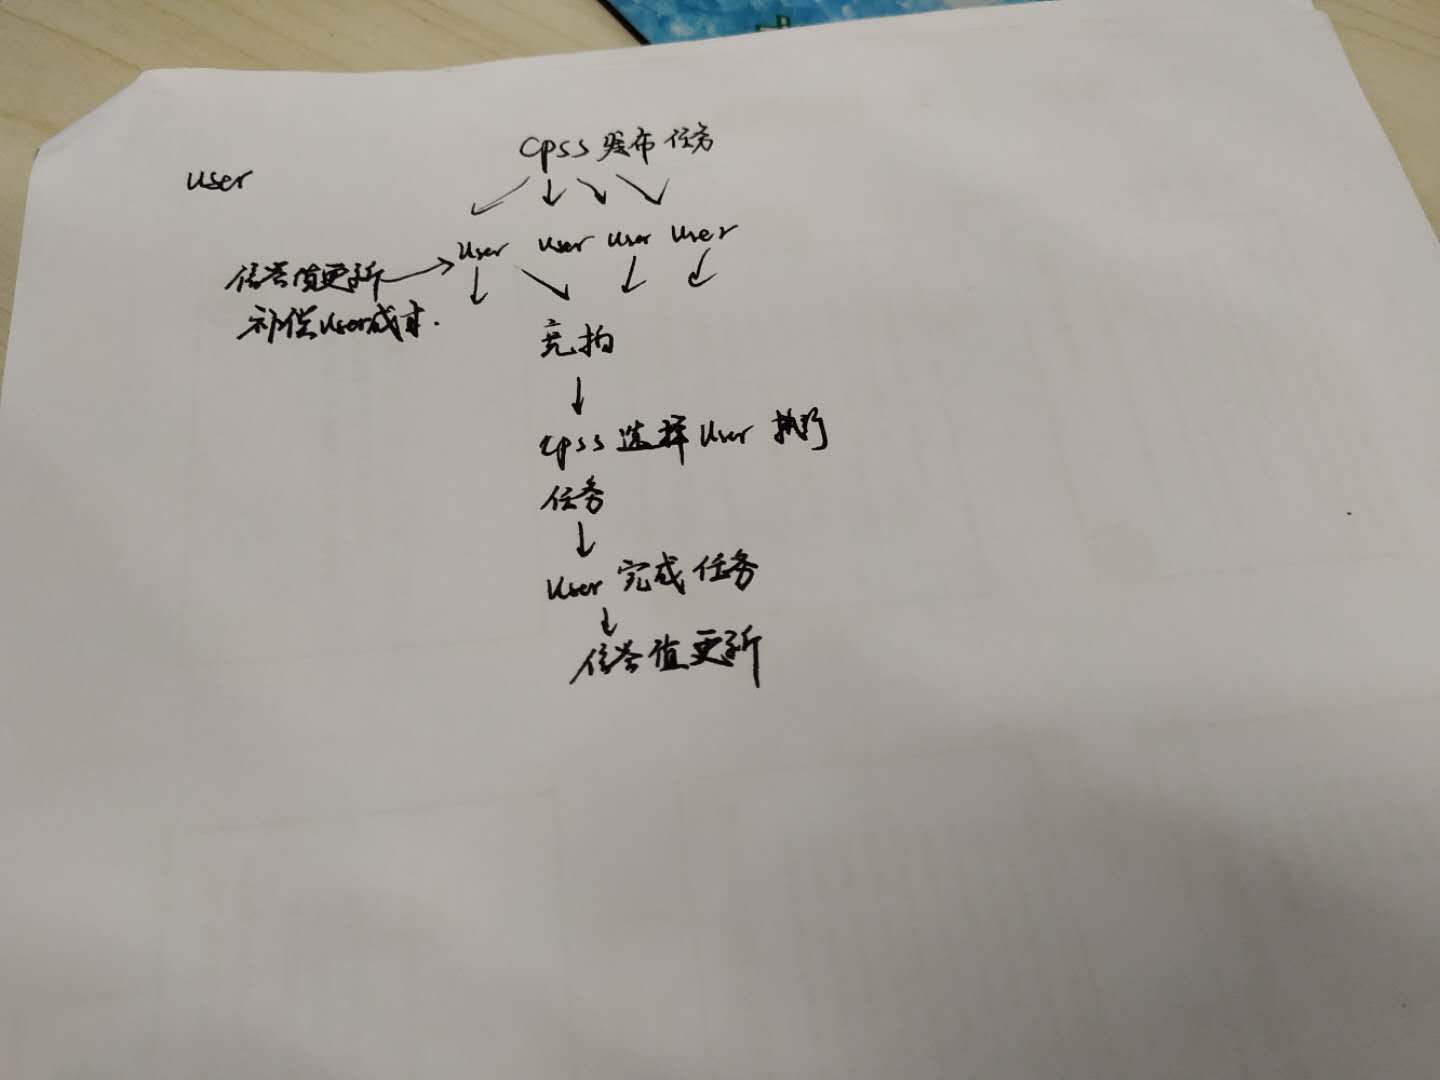 cpss 发布 任务
user
user user user user
信誉值更新
补偿user成本.
竞拍
cpss 选择 user 执行
任务
user 完成 任务
信誉值更新